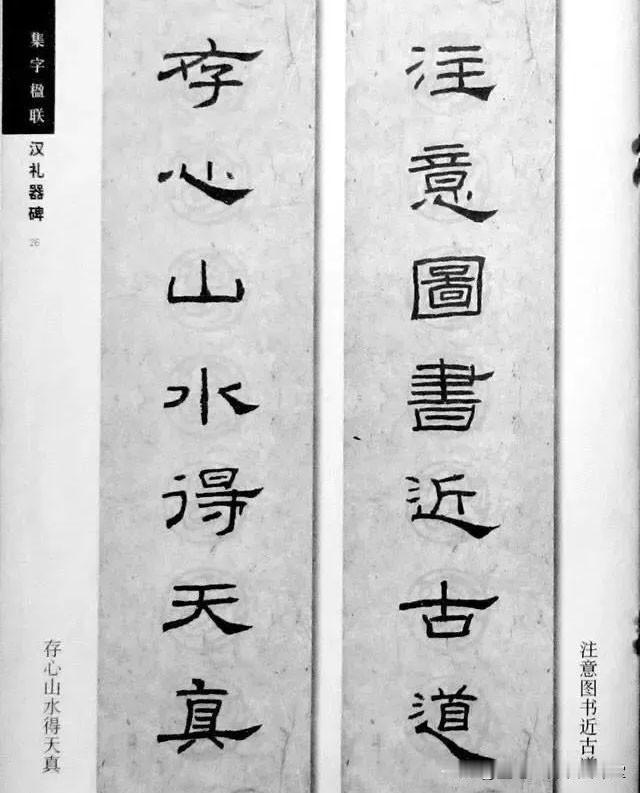 集字楹联
汉礼器碑
26
注意圖書近古道
存心山水得天真
注意图书近古
存心山水得天真